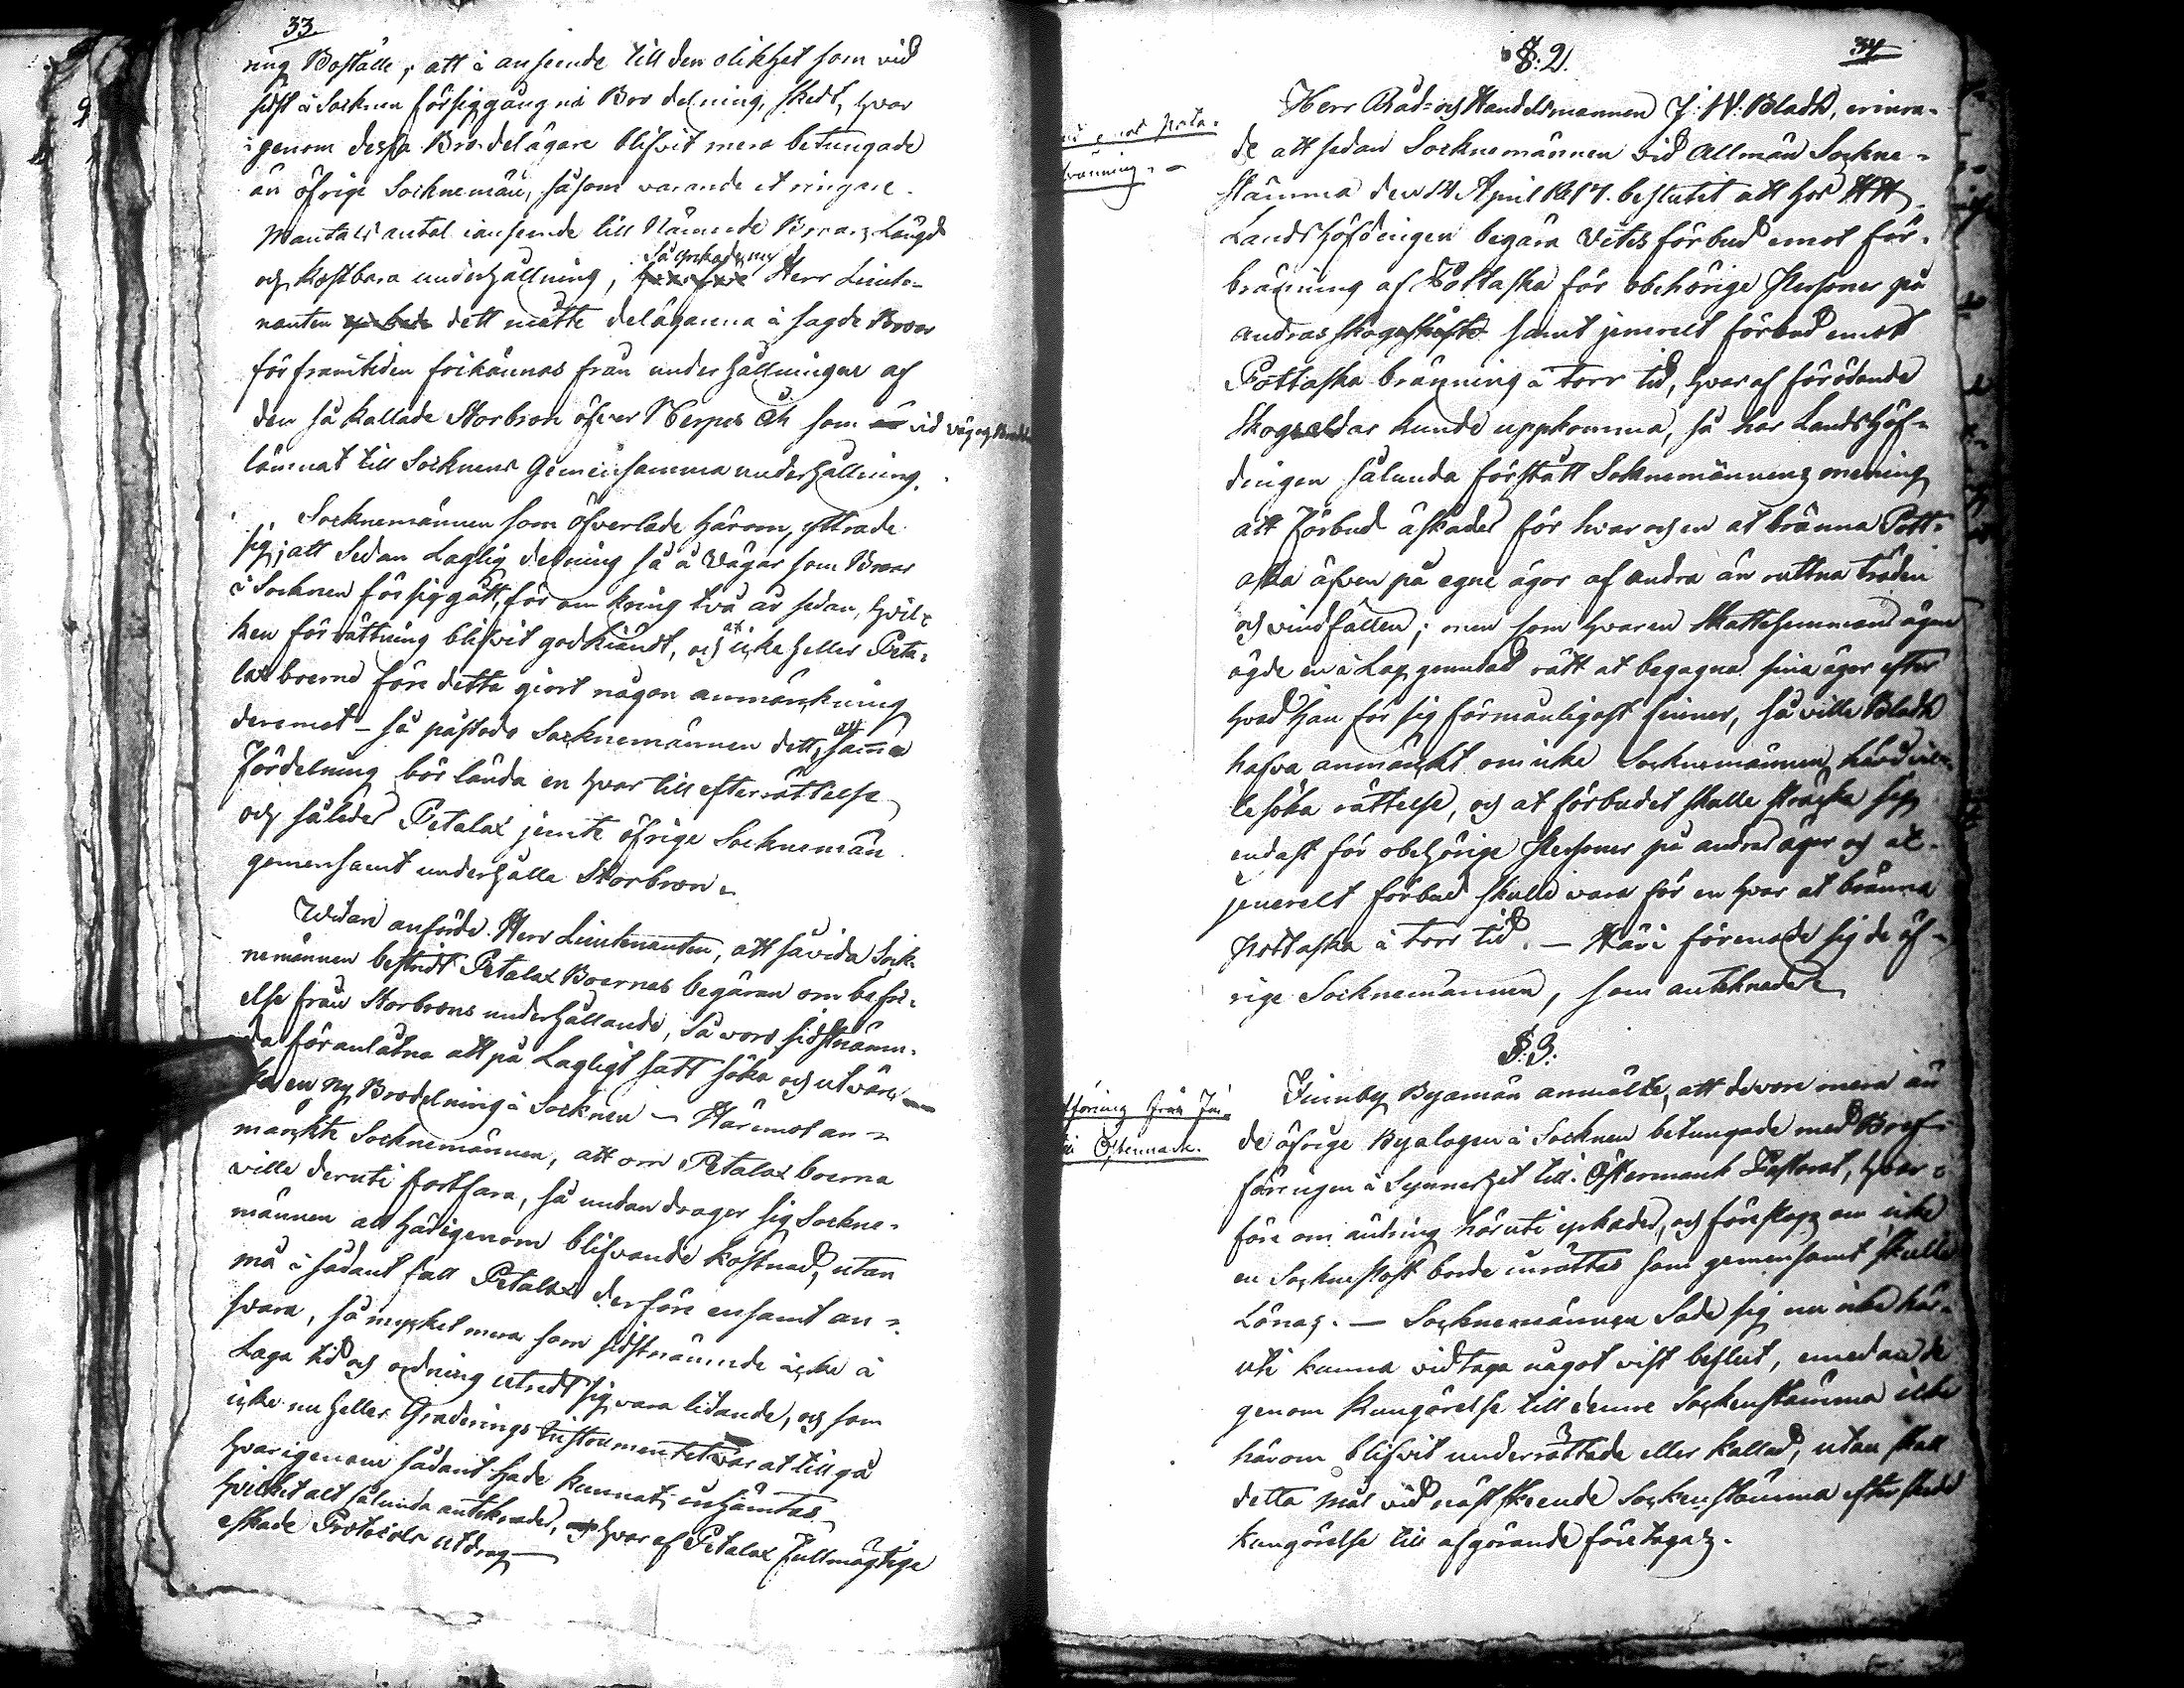 33.
ring Boställe, att i anseende till den olikhet som vid
sidst i Socknen försiggångna Bro delning, skedt, hvar
igenom dessa Bro-delägare blifvit mera betungade
än öfrige Socknemän, såsom varande et ringare
Mantals antal i anseende till Nämnde Broars Längd
och kostbara underhållning, Så yrkade nu Herr Lieute-
nanten dett måtte delägarna i sagde Broar
för framtiden frikännas från underhållningen af
den så kallade Storbron öfver Nerpes Åh som vid väg och Brodeln
lämnat till Socknens Gemensamma underhållning.
Socknemännen som öfverlade härom, yttrade
sig, att Sedan Laglig delning så å Vägar som Broar
i Socknen försiggått, för omkring två år sedan, hvil-
ken förrättning blifvit godkiändt, och at icke heller Peta-
lax boerne före detta giort någon anmärkning
deremot - så påstodo Socknemännen dett, att samma
Fördelning bör lända en hvar till efterrättelse
och således Petalax jemte öfrige Socknemän
gemensamt underhålla Storbron.
Vidare anförde Herr Lieutenanten, att såvida Sock-
nemännen bestridt Petalax Boernes begäran om befri-
else från Storbrons underhållande, Så voro sidstnämn-
da föranlåtna att på Lagligt sätt söka och utvär-
ka en ny Brodelning i Socknen - Häremot an-
märkte Socknemännen, att om Petalax boerna
ville deruti fortfara, så undandrager sig Sockne-
männen all härigenom blifvande kostnad, utan
må i sådant fall Petalax derföre ensamt an-
svara, så mycket mera som sidstnämnde icke i
Laga tid och ordning utredt sig vara lidande, och som
icke nu heller Graderings Instrumentet var at tillgå
hvarigenom sådant hade kunnat inhämtas
hvilket alt sålunda antecknades, hvaraf Petalax Fullmägtige
eskade Protocols Utdrag
34
§: 2.
emot Potta-
bränning. -
Herr Råd- och Handelsmannen J: W: Bladh, erinra-
de att sedan Socknemännen vid Allmän Sockne-
Stämma den 14 April 1817. beslutit att hos HH
Landshöfdingen begära Vites förbud emot för-
bränning af Pottaska för obehörige Personer på
andras skogsskifte samt jenerelt förbud emott
Pottaska bränning i torr tid, hvaraf förödande
Skogseldar kunde uppkomma, så har Landshöf-
dingen sålunda förstått Socknemännens mening
att Förbud äskades för hvar och en at bränna Pott-
aska äfven på egne ägor af andra än ruttna träden
och vindfällen; men som hvar en Skattehemmans ägare
ägde en i Lag grundad rätt at begagna sina ägor efter
hvad han för sig förmånligast finner, så ville Bladh
hafva anmärkt om icke Socknemännen härvid vil-
le söka rättelse, och at förbudet skulle sträcka sig
endast för obehörige Personer på andras ägor och at
jenerelt förbud skulle vara för en hvar at bränna
pottaska i torr tid. - Häri förenade sig de öf-
rige Socknemännen, som antecknades
§: 3:
föring från Fin-
till Östermark.
Finnby Byamän anmälte, att de vore mera än
de öfrige Byalagen i Socknen betungade med Bref-
föringen i Synnerhet till Östermark Pastorat, hvar-
före om ändring häruti yrkades, och föreslogs om icke
en Sockne Post borde inrättas som gemensamt skulle
Lönas. - Socknemännen Sade sig nu icke här-
uti kunna vidtaga något vist beslut, emedan de
genom Kungörelse till denne Sockenstämma icke
härom blifvit underrättade eller kallad, utan skall
detta mål vid näst skeende Sockenstämma efter skedd
kungörelse till afgörande företagas.